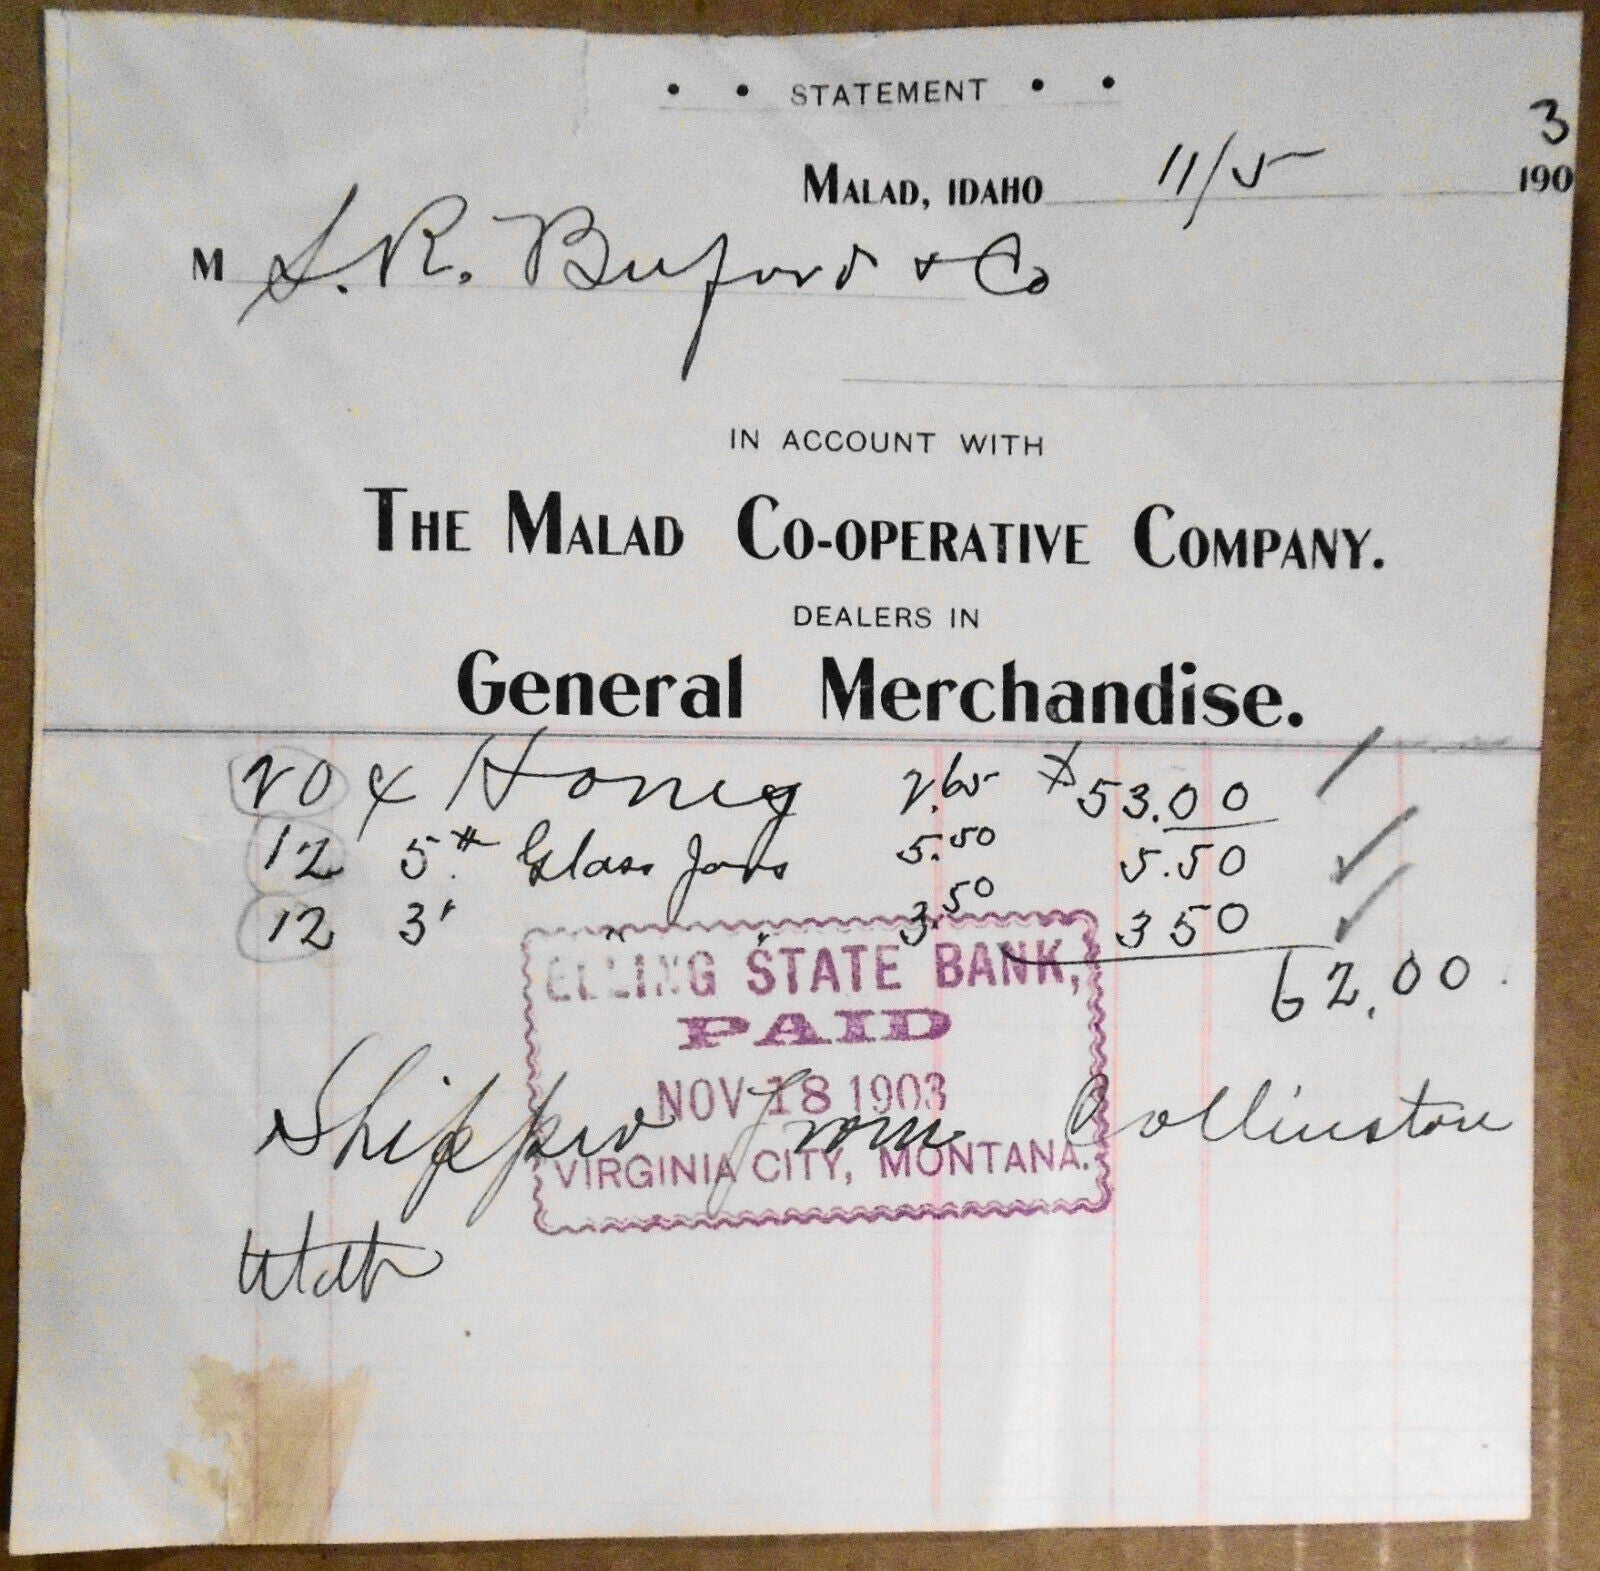 • • STATEMENT • •
3
MALAD, IDAHO 11/5 190
M S. R. Buford + Co
IN ACCOUNT WITH
THE MALAD CO-OPERATIVE COMPANY.
DEALERS IN
General Merchandise.
20 Honey 2.65 $53.00
12 5# Glass Jars 5.50 5.50
12 3" " " 3.50 3 50
62.00
ELLING STATE BANK,
PAID
NOV 18 1903
VIRGINIA CITY, MONTANA.
Shipped from Collinston
Utah